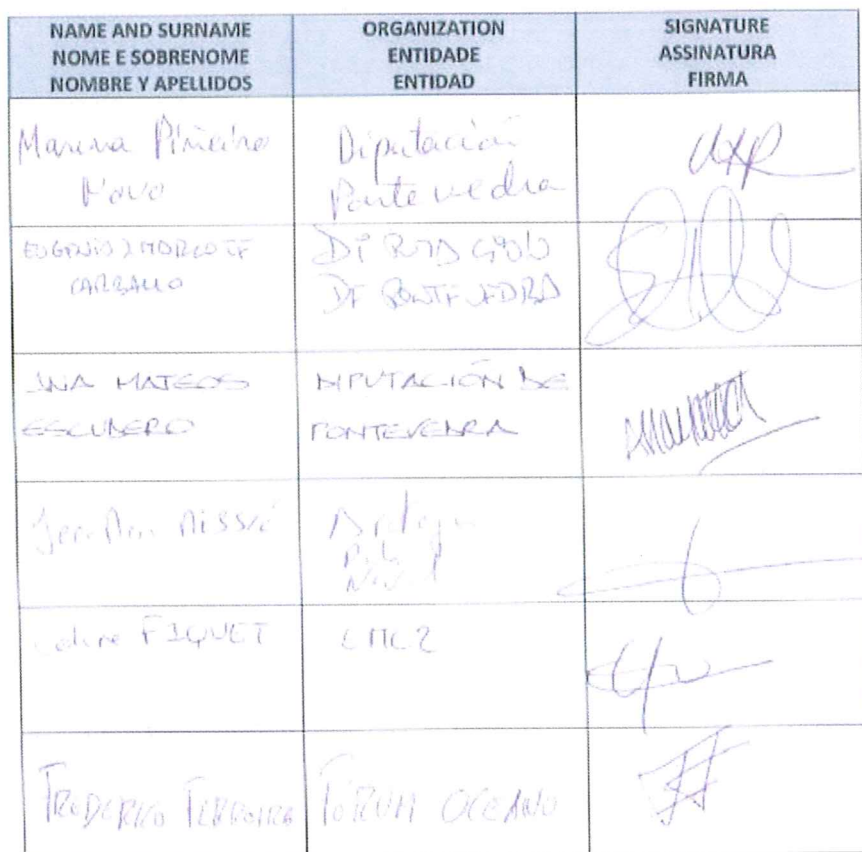 NAME AND SURNAME
NOME E SOBRENOME
NOMBRE Y APELLIDOS
ORGANIZATION
ENTIDADE
ENTIDAD
SIGNATURE
ASSINATURA
FIRMA
Marina Piñeiro
Novo
Diputación
Pontevedra
EUGENIO
CARBALLO
DIPUTACIÓN
DE PONTEVEDRA
ANA MATEOS
ESCUDERO
DIPUTACIÓN DE
PONTEVEDRA
FIQUET
CMC2
FREDERICO FERREIRA
FÓRUM OCEANO